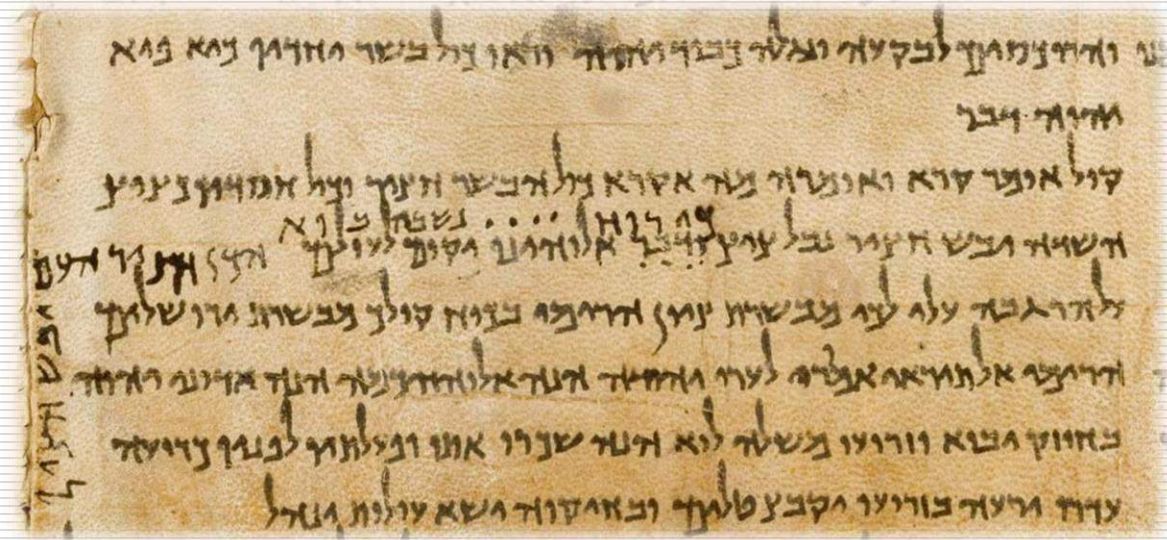 והרוכסים לבקעה ונגלה כבוד יהוה וראו כול בשר יחדיו כיא פיא
יהוה דבר
קול אומר קרא ואומרה מה אקרא כול הבשר חציר וכול חסדיו כציץ
כי רוח .... נשבה בוא
השדה יבש חציר נבל ציץ ודבר אלוהינו יקום לעולם הכן חציר העם
על הר גבה עלי לך מבשרת ציון הרימי בכוח קולך מבשרת ירושלים
הרימי אל תיראי אמרי לערי יהודה הנה אלוהיכמה הנה אדוני יהוה
בחוזק יבוא וזרועו משלה לוא הנה שכרו אתו ופעלתיו לפניו כרועה
עדרו ירעה בזרועו יקבץ טלים ובחיקוה ישא עולות ינהל
יבש חציר נבל